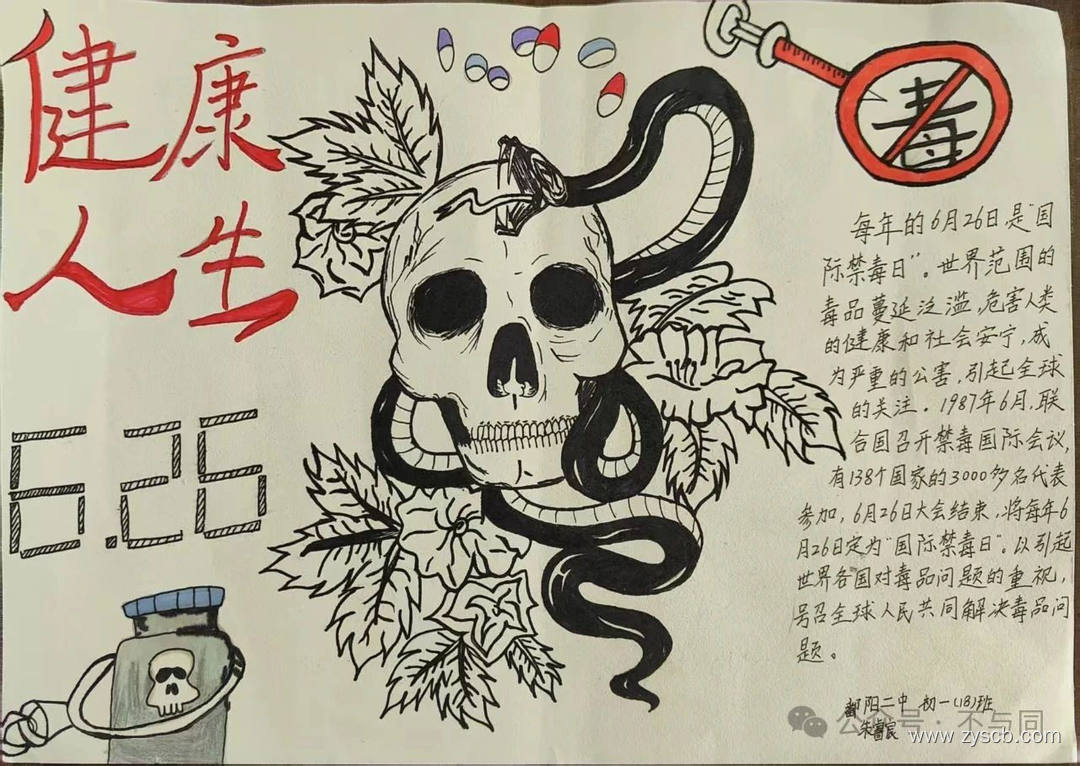 健康
人生
6.26
毒
每年的6月26日,是"国
际禁毒日"。世界范围的
毒品蔓延泛滥,危害人类
的健康和社会安宁,成
为严重的公害,引起全球
的关注。1987年6月,联
合国召开禁毒国际会议,
有138个国家的3000多名代表
参加,6月26日大会结束,将每年6
月26日定为"国际禁毒日"。以引起
世界各国对毒品问题的重视,
号召全球人民共同解决毒品问
题。
鄱阳二中 初一(18)班
朱睿宸
公众号·不与同
www.zyscb.com